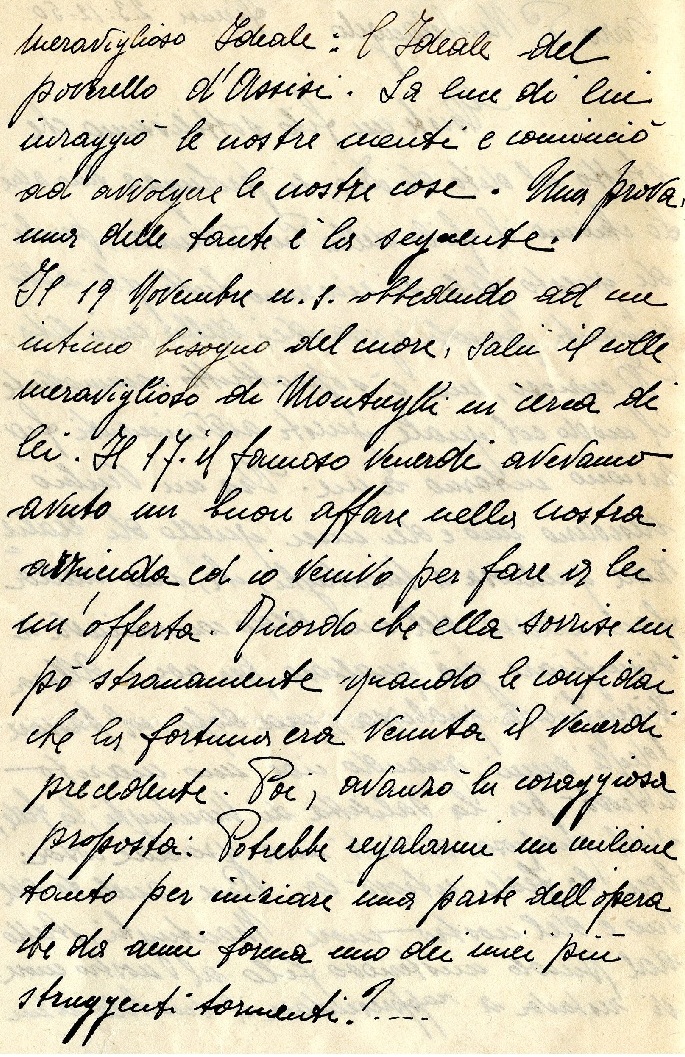 meraviglioso Ideale: l'Ideale del
poverello d'Assisi. La luce di lui
irraggiò le nostre menti e cominciò
ad avvolgere le nostre cose. Una prova,
una delle tante è la seguente.
Il 19 Novembre u. s. obbedendo ad un
intimo bisogno del cuore, salii il colle
meraviglioso di Montughi in cerca di
lei. Il 17. il famoso venerdì avevamo
avuto un buon affare nella nostra
azienda ed io venivo per fare a lei
un'offerta. Ricordo che ella sorrise un
pò stranamente quando le confidai
che la fortuna era venuta il venerdì
precedente. Poi, avanzò la coraggiosa
proposta: Potrebbe regalarmi un milione
tanto per iniziare una parte dell'opera
che da anni forma uno dei miei più
struggenti tormenti?....